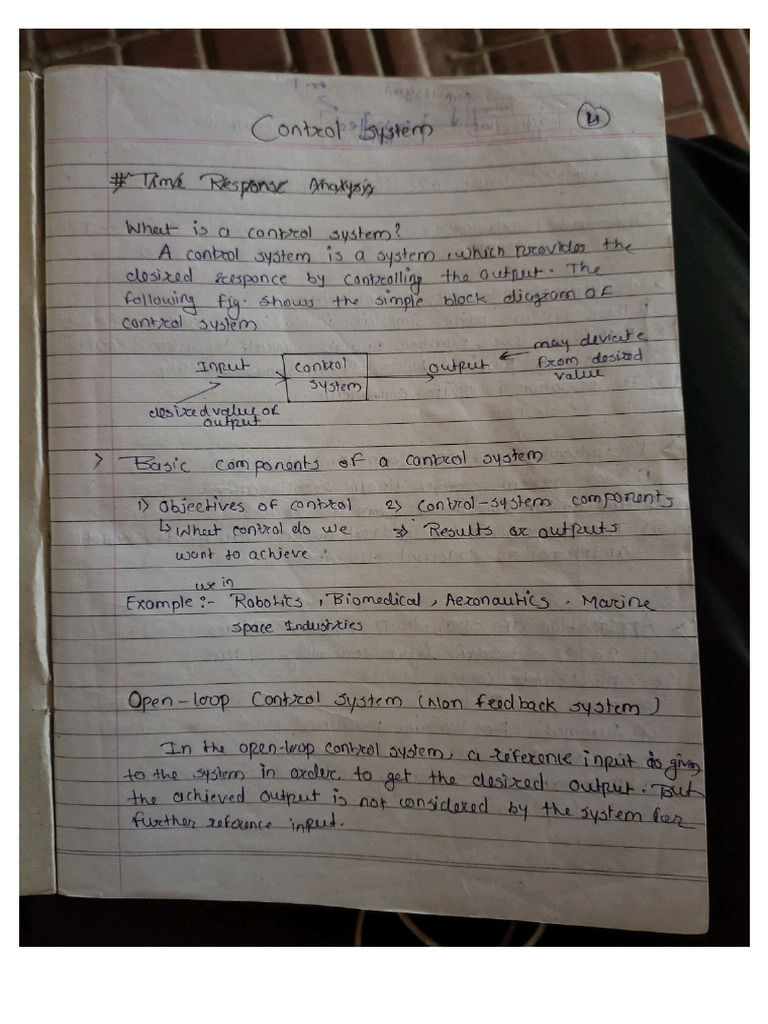 Control System
4
# Time Response Analysis
What is a control system?
A control system is a system, which provides the
desired responce by controlling the output. The
following fig. shows the simple block diagram of
control system
Input
control
system
output
may deviate
from desired
value
desired value of
output
> Basic components of a control system
1) Objectives of control 2) Control-system components
↳ What control do we 3) Results or outputs
want to achieve.
use in
Example :- Robotics, Biomedical, Aeronautics. Marine
space Industries
Open-loop Control system (Non feedback system)
In the open-loop control system, a reference input is given
to the system in order to get the desired output. But
the achieved output is not considered by the system for
further refernce input.